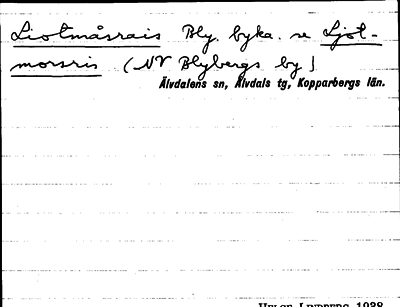 Liotmåsrais Bly. byka. se Ljot-
morsris (NV Blybergs by)
Älvdalens sn, Älvdals tg, Kopparbergs län.
HELGE LINDBERG 1928